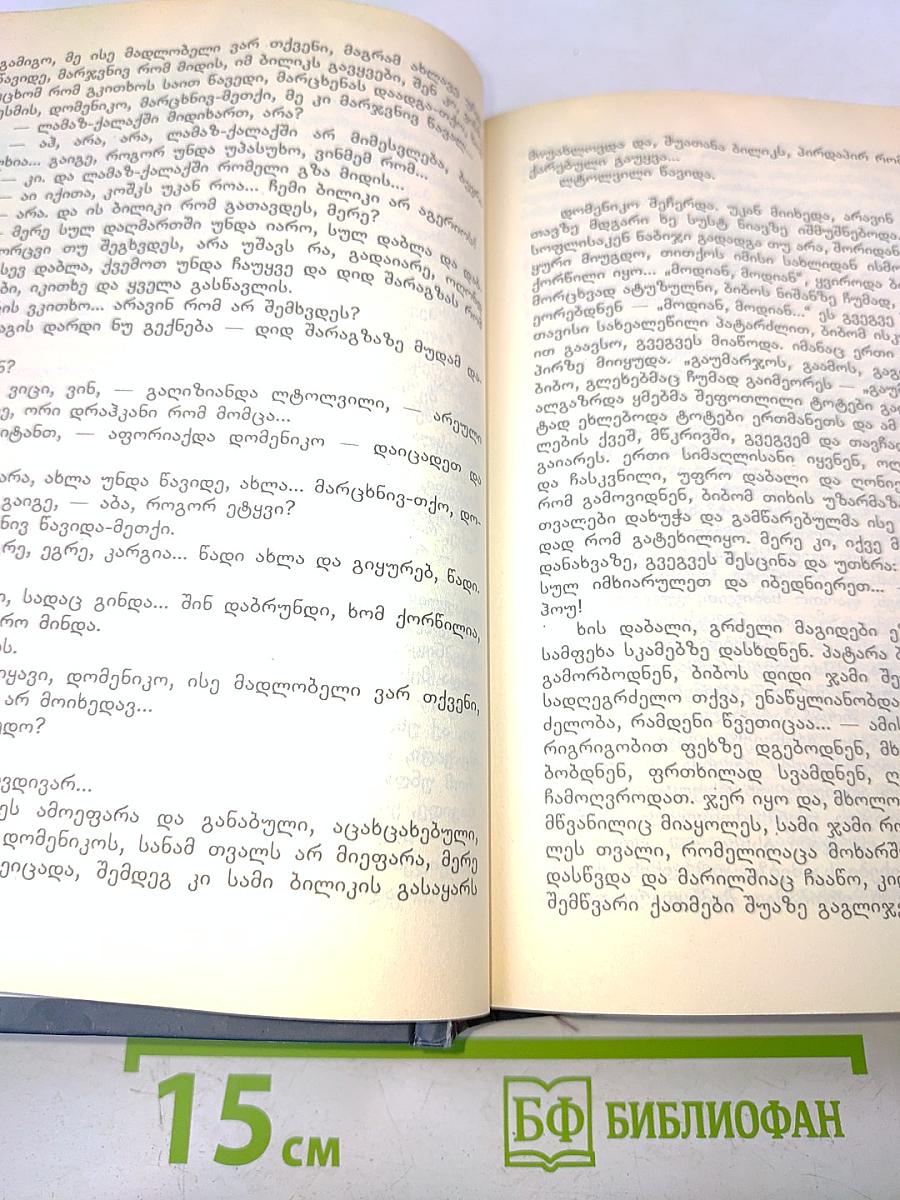 გამიგო, მე ისე მადლობელი ვარ თქვენი, მაგრამ ახლავე
წავიდე, მარჯვნივ რომ მიდის, იმ ბილიკს გავყვები, შენ კი,
რომ გკითხოს საით წავედი, მარცხენას დაადგა-თქო,
ესმის, დომენიკო, მარცხნივ-მეთქი, მე კი მარჯვნივ წავალ—
— ლამაზ-ქალაქში მიდიხართ, არა?
— აჰ, არა, არა, ლამაზ-ქალაქში არ მიმესვლება,
გაიგე, როგორ უნდა უპასუხო, ვინმემ რომ...
— კი. და ლამაზ-ქალაქში რომელი გზა მიდის...
— აი იქითა, კოშკს უკან როა... ჩემი ბილიკი არ აგერიოს!
— არა. და ის ბილიკი რომ გათავდეს, მერე?
— მერე სულ დაღმართში უნდა იარო, სულ დაბლა და დაბ-
თუ შეგხვდეს, არა უშავს რა, გადაიარე, ოღონდ
ისევ დაბლა, ქვემოთ უნდა ჩაუყვე და დიდ შარაგზას რომ
იკითხე და ყველა გასწავლის.
ვის ვკითხო... არავინ რომ არ შემხვდეს?
მაგის დარდი ნუ გექნება — დიდ შარაგზაზე მუდამ და-
ვიცი, ვინ, — გაღიზიანდა ლტოლვილი, — არეული
ორი დრაჰკანი რომ მომცა...
— აფორიაქდა დომენიკო — დაიცადეთ და
არა, ახლა უნდა წავიდე, ახლა... მარცხნივ-თქო, დო-
გაიგე, — აბა, როგორ ეტყვი?
წავიდა-მეთქი.
ეგრე, კარგია... წადი ახლა და გიყურებ, წადი.
სადაც გინდა... შინ დაბრუნდი, ხომ ქორწილია,
მინდა.
დომენიკო, ისე მადლობელი ვარ თქვენი,
არ მოიხედავ...
ამოეფარა და განაბული, აცახცახებული,
დომენიკოს, სანამ თვალს არ მიეფარა, მერე
შემდეგ კი სამი ბილიკის გასაყარს
მიუახლოვდა და, შუათანა ბილიკს, პირდაპირ რომ
ქარებული გაუყვა...
ლტოლვილი წავიდა.
დომენიკო შეჩერდა. უკან მიიხედა, არავინ
თავზე მდგარი ხე სუსტ ნიავზე იშმუშნებოდა,
სოფლისაკენ ნაბიჯი გადადგა თუ არა, შორიდან
ყური მიუგდო, თითქოს იმისი სახლიდან ისმო
ქორწილი იყო... „მოდიან, მოდიან“, ყვიროდა ბი
მორცხვად ატუზულნი, ბიბოს ნიშანზე ჩუმად,
ეორებდნენ — „მოდიან, მოდიან...“ ეს გვეგვე
თავისი სახეალეწილი პატარძლით, ბიბომ ისკ
ით გაავსო, გვეგვეს მიაწოდა. იმანაც ერთი
პირზე მიიყუდა. „გაუმარჯოს, გაამოს,
ბიბო, გლეხებმაც ჩუმად გაიმეორეს — „გაუმ
ალგაზრდა ყმებმა შეფოთლილი ტოტები გად
ტად ეხლებოდა ტოტები ერთმანეთს და ამ
ლების ქვეშ, მწკრივში, გვეგვემ და თავჩა
გაიარეს. ერთი სიმაღლისანი იყვნენ, ოღ
და ჩასკვნილი, უფრო დაბალი და ღონიე
რომ გამოვიდნენ, ბიბომ თიხის უზარმაზ
თვალები დახუჭა და გამწარებულმა ისე
დად რომ გატეხილიყო. მერე კი, იქვე მ
დანახვაზე, გვეგვეს შესცინა და უთხრა:
სულ იმხიარულეთ და იბედნიერეთ... —
ჰოუ!
ხის დაბალი, გრძელი მაგიდები ე
სამფეხა სკამებზე დასხდნენ. პატარა ბ
გამორბოდნენ, ბიბოს დიდი ჯამი შე
სადღეგრძელო თქვა, ენაწყლიანობდა
ძელობა, რამდენი წვეთიცაა... — ამის
რიგრიგობით ფეხზე დგებოდნენ, მხ
ბობდნენ, ფრთხილად სვამდნენ, ღ
ჩამოღვროდათ. ჯერ იყო და, მხოლო
მწვანილიც მიაყოლეს, სამი ჯამი რო
ლეს თვალი, რომელიღაცა მოხარშ
დასწვდა და მარილშიაც ჩააწო, კიდ
შემწვარი ქათმები შუაზე გაგლიჯე
15 см
БФ БИБЛИОФАН